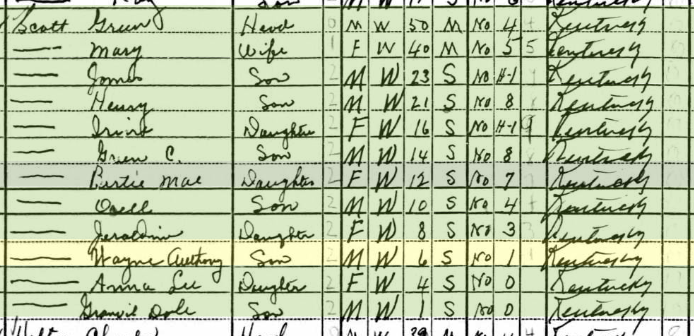 Scott Green Head M W 50 M No 4 Kentucky
Mary Wife F W 40 M No 5 5 Kentucky
James Son M W 23 S No H-1 Kentucky
Henry Son M W 21 S No 8 Kentucky
Daughter F W 16 S No H-1 9 Kentucky
Green C. Son M W 14 S No 8 Kentucky
Bertie Mae Daughter F W 12 S No 7 Kentucky
Odell Son M W 10 S No 4 Kentucky
Jeraldine Daughter F W 8 S No 3 Kentucky
Wayne Anthony Son M W 6 S No 1 Kentucky
Anna Lee Daughter F W 4 S No 0 Kentucky
Dale Son M W 1 S No 0 Kentucky